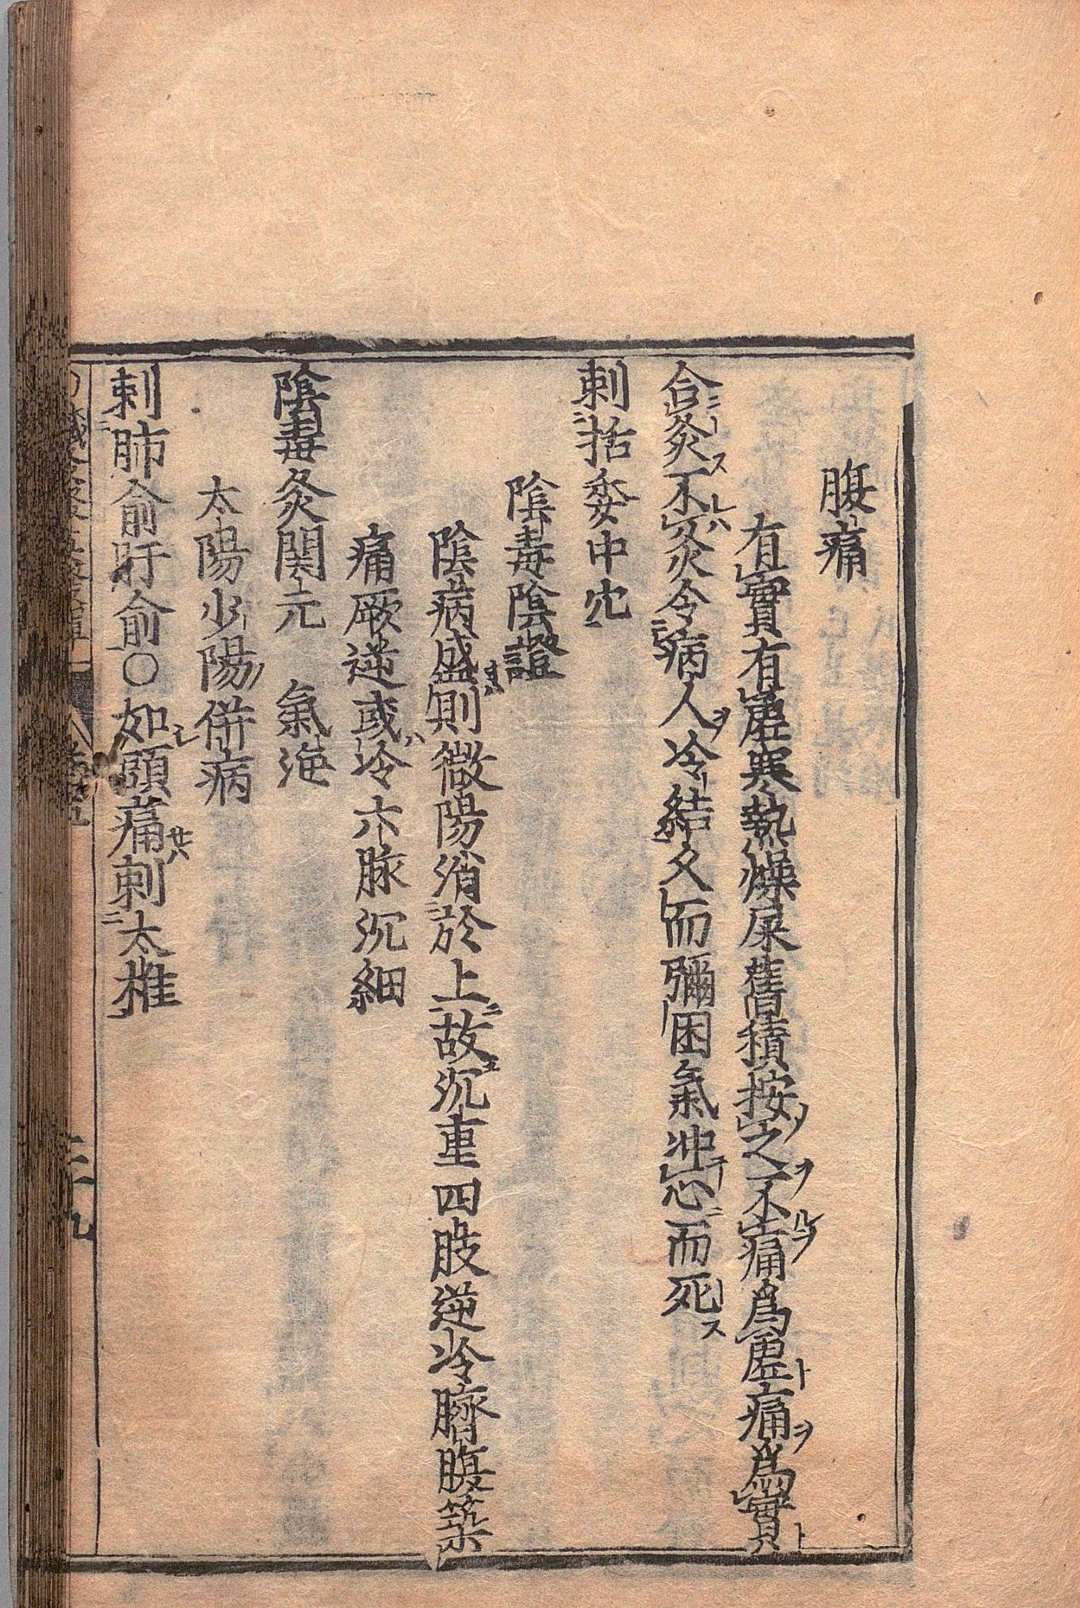 腹痛
有實有虛寒熱燥屎舊積按之不痛爲虛痛爲實
合灸不灸令病人冷結久而彌困氣冲心而死
刺括委中穴
陰毒陰證
陰病盛則微陽消於上故沉重四肢逆冷臍腹築
痛厥逆或冷六脉沉細
陰毒灸関元 氣海
太陽少陽併病
刺肺俞肝俞○如頭痛刺太椎